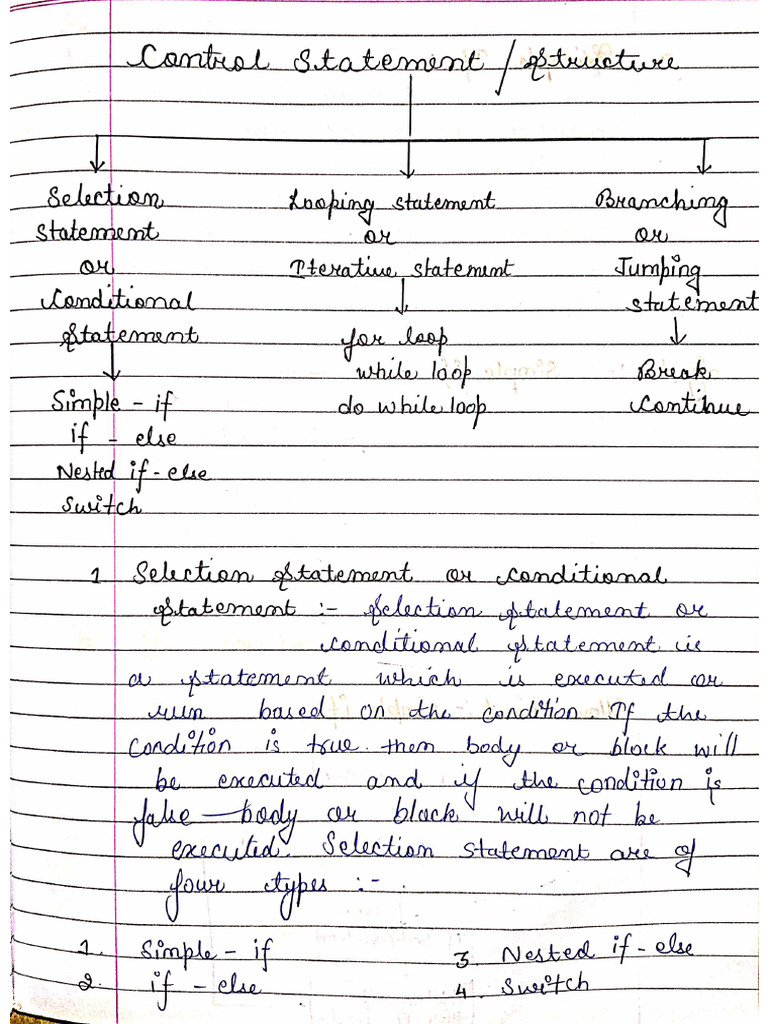 Control Statement / Structure
Selection
statement
or
Conditional
Statement
Simple - if
if - else
Nested if - else
Switch
Looping statement
or
Iterative statement
for loop
while loop
do while loop
Branching
or
Jumping
statement
Break
Continue
1 Selection Statement or conditional
Statement :- Selection statement or
conditional statement is
a statement which is executed or
run based on the condition If the
condition is true then body or block will
be executed and if the condition is
false body or block will not be
executed. Selection statement are of
four types :-
1. Simple - if
2. if - else
3. Nested if - else
4. Switch